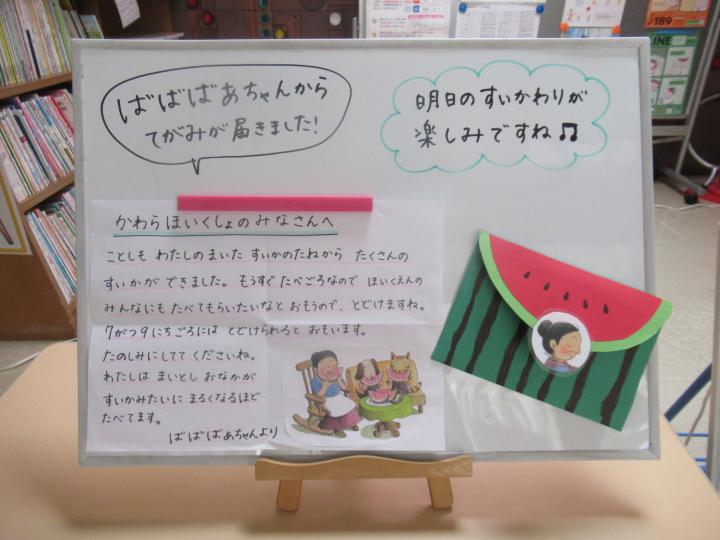 ばばばあちゃんから
てがみが届きました!
明日のすいかわりが
楽しみですね♫
かわらほいくしょのみなさんへ
ことしも わたしのまいた すいかのたねから たくさんの
すいかが できました。 もうすぐ たべごろなので ほいくえんの
みんなにも たべてもらいたいなと おもうので、とどけますね。
7がつ9にちごろには とどけられると おもいます。
たのしみにしてて くださいね。
わたしは まいとし おなかが
すいかみたいに まるくなるほど
たべてます。
ばばばあちゃんより
189
LINE